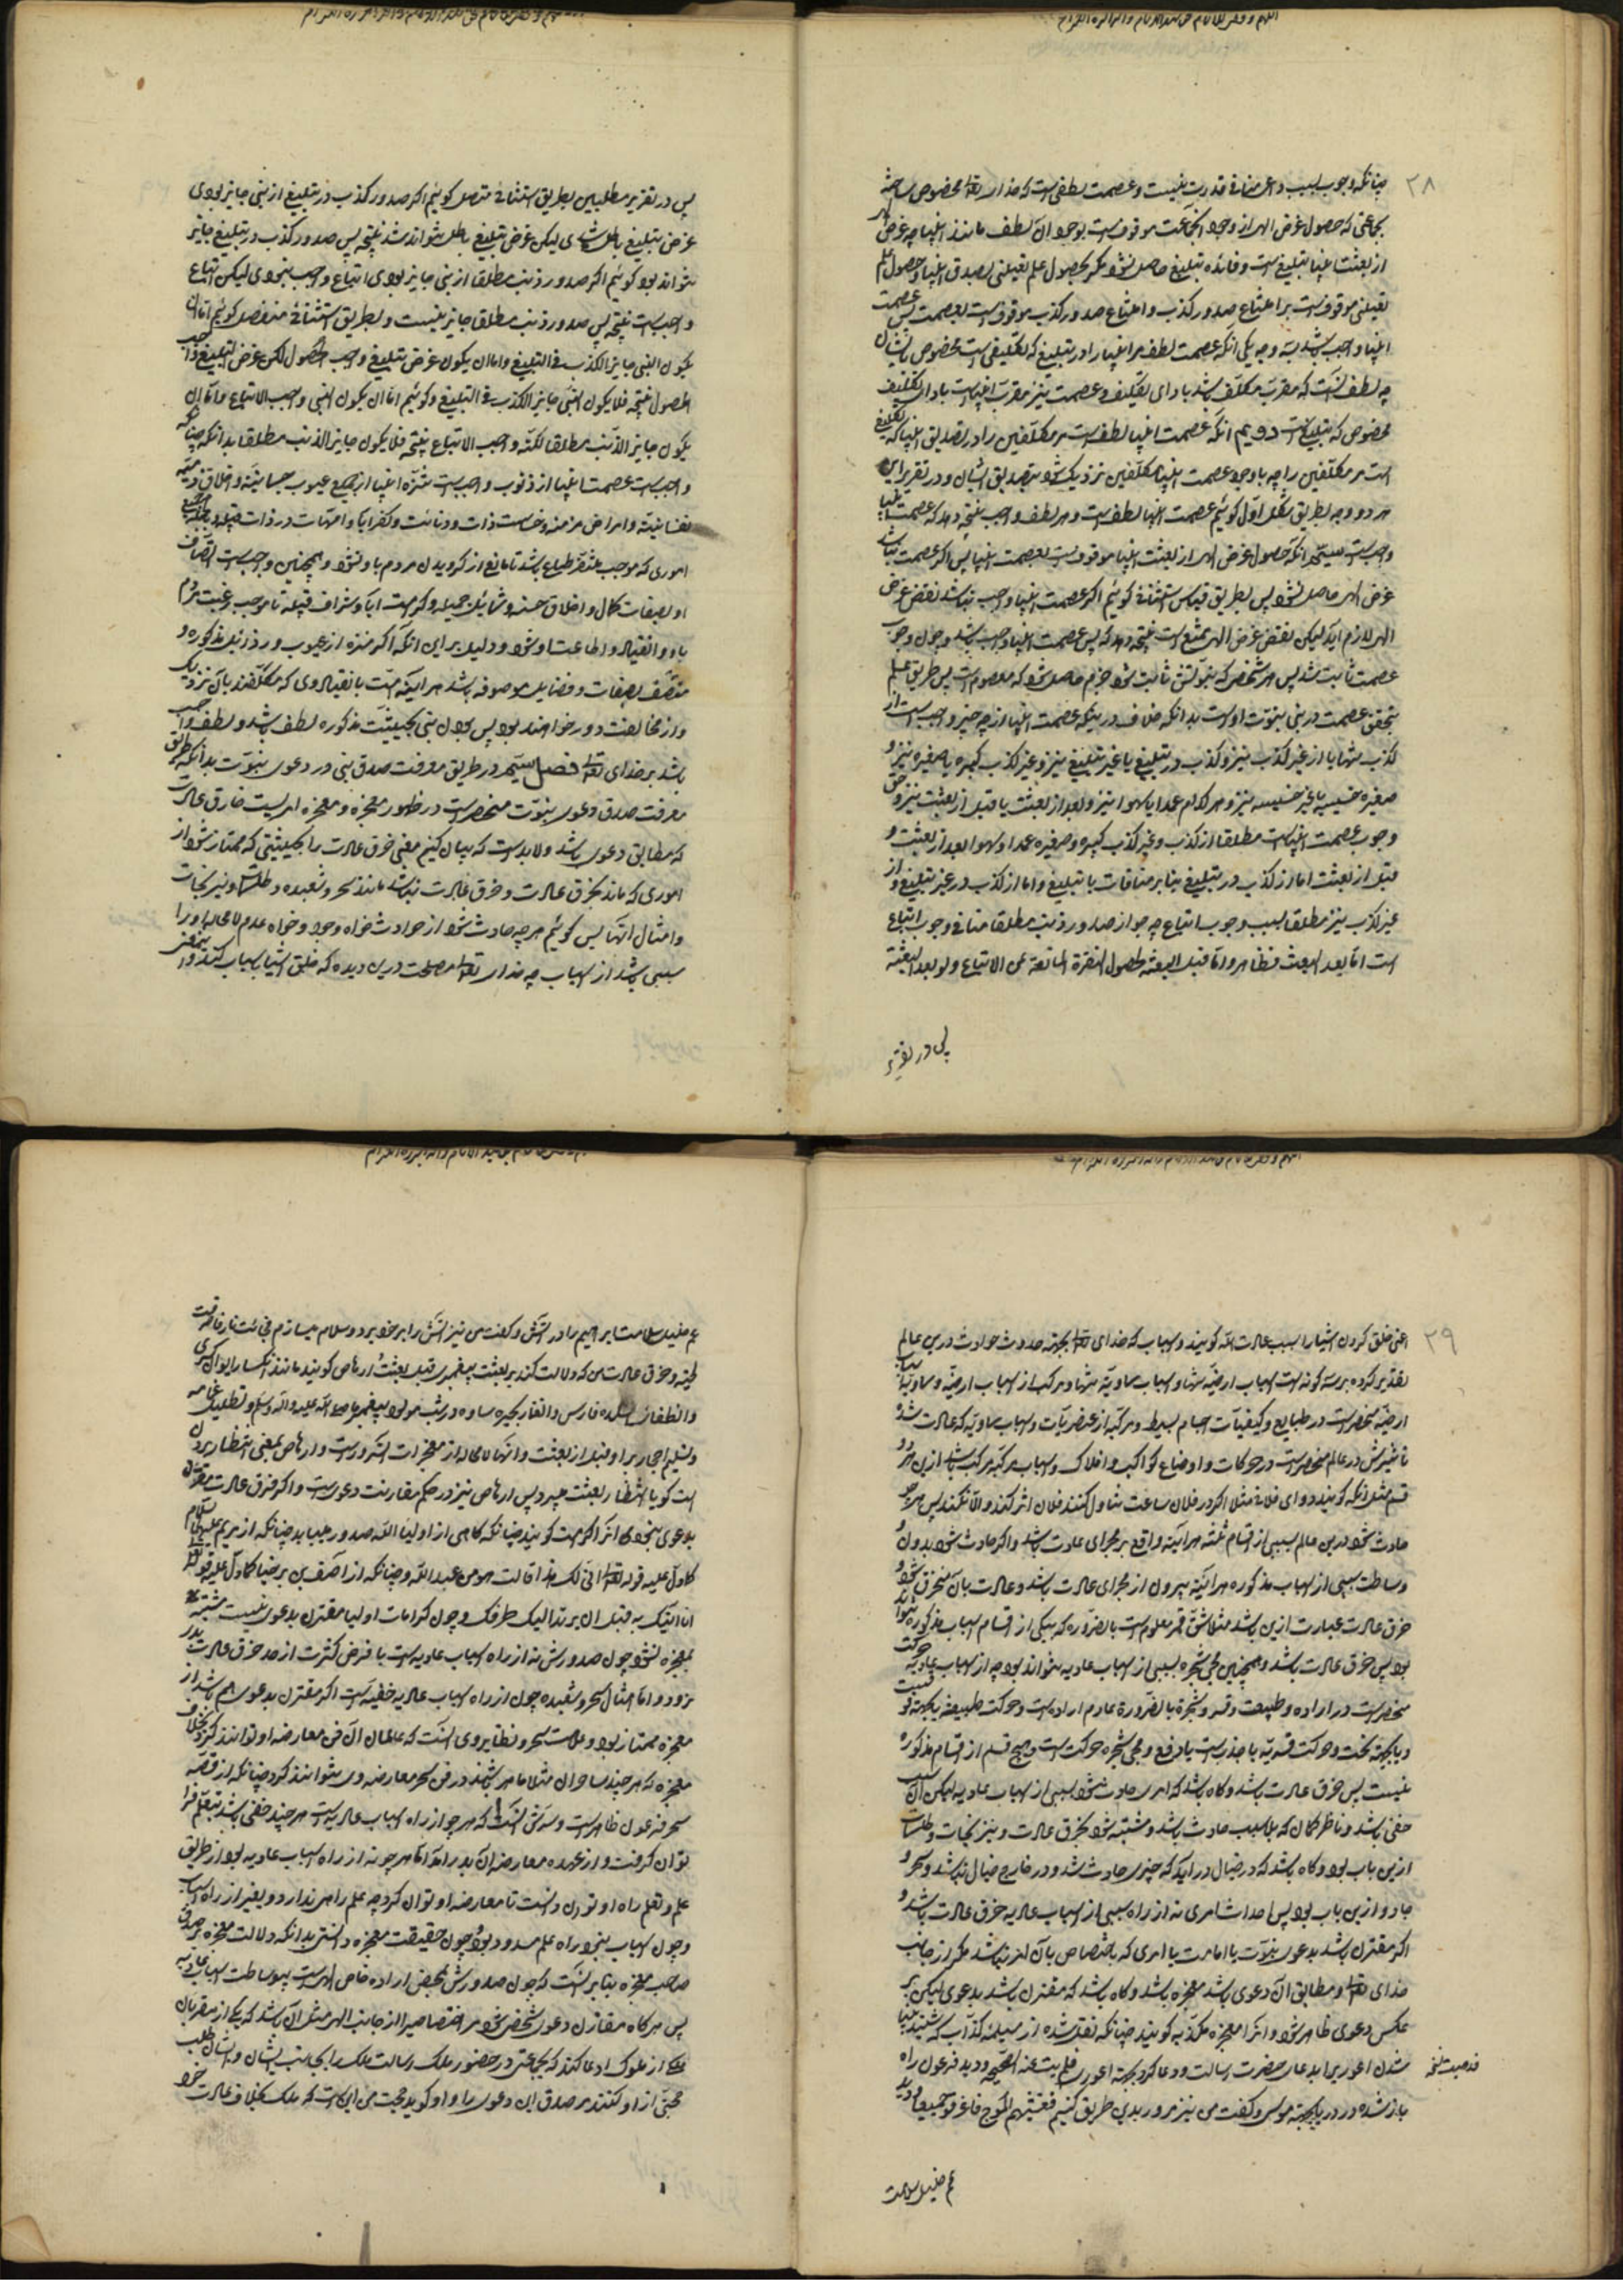 ۲۸
چنانکه وجوب بسبب داعی منافی قدرت نیست و عصمت لطفی است که خدای تعالی مخصوص ساخته
بجماعتی که حصول غرض الهی از وجود آنجماعت موقوفست بوجود آن لطف مانند انبیا چه غرض
از بعثت انبیا تبلیغ است و فائده تبلیغ حاصل نشود مگر بحصول علم یقینی بصدق انبیا و حصول علم
یقینی موقوفست بر امتناع صدور کذب و امتناع صدور کذب موقوفست بعصمت پس عصمت
انبیا واجب باشد بسه وجه یکی آنکه عصمت لطف است مر انبیا را در تبلیغ که تکلیفی است مخصوص بایشان
چه لطف آنست که مقرب مکلف باشد بادای تکلیف و عصمت نیز مقرب انبیاست بادای تکلیف
مخصوص که تبلیغ است دویم آنکه عصمت انبیا لطف است مر مکلفین را در تصدیق انبیا که تکلیف
است مر مکلفین را چه با وجود عصمت انبیا مکلفین نزدیک شوند بتصدیق ایشان و در تقریر این
هر دو وجه بطریق شکل اول گوئیم عصمت انبیا لطف است و هر لطف واجب نتیجه دهد که عصمت انبیا
واجبست سیّم آنکه حصول غرض الهی از بعثت انبیا موقوفست بعصمت انبیا پس اگر عصمت نباشد
غرض الهی حاصل نشود پس بطریق قیاس استثنائی گوئیم اگر عصمت انبیا واجب نباشد نقض غرض
الهی لازم آید لیکن نقض غرض الهی ممتنع است نتیجه دهد که پس عصمت انبیا واجب باشد و چون وجوب
عصمت ثابت شد پس هر شخصی که نبوتش ثابت شود جزم حاصل شود که معصوم است پس طریق علم
بتحقق عصمت در نبی نبوت اوست بدانکه خلاف در اینکه عصمت انبیا از چه چیز واجب است از
کذب تنها یا از غیر کذب نیز و کذب در تبلیغ یا غیر تبلیغ نیز و غیر کذب کبیره یا صغیره نیز و
صغیره خسیسه یا غیر خسیسه نیز و هر کدام عمدا یا سهوا نیز و بعد از بعثت یا قبل از بعثت نیز و حق
وجوب عصمت انبیاست مطلقا از کذب و غیر کذب کبیره و صغیره عمدا و سهوا بعد از بعثت و
قبل از بعثت اما از کذب در تبلیغ بنابر منافات با تبلیغ و اما از کذب در غیر تبلیغ و از
غیر کذب نیز مطلقا بسبب وجوب اتباع چه جواز صدور ذنب مطلقا منافی وجوب اتباع
است اما بعد البعث فظاهر و اما قبل البعثة لحصول النفرة المانعة عن الاتباع ولو بعد البعثة
پس در تقریر
پس در تقریر مطلبین بطریق استثنائی متصل گوئیم اگر صدور کذب در تبلیغ از نبی جایز بودی
غرض تبلیغ باطل شدی لیکن غرض تبلیغ باطل نتواند شد نتیجه پس صدور کذب در تبلیغ جایز
نتواند بود و گوئیم اگر صدور ذنب مطلقا از نبی جایز بودی اتباع واجب نبودی لیکن اتباع
واجب است نتیجه پس صدور ذنب مطلقا جایز نیست و بطریق استثنائی منفصل گوئیم اما ان
یکون النبی جایز الکذب فی التبلیغ و اما ان یکون غرض تبلیغ واجب الحصول لکن غرض التبلیغ واجب
الحصول نتیجه فلا یکون النبی جایز الکذب فی التبلیغ و گوئیم اما ان یکون النبی واجب الاتباع و اما ان
یکون جایز الذنب مطلقا لکنه واجب الاتباع نتیجه فلا یکون جایز الذنب مطلقا بدانکه چنانکه
واجب است عصمت انبیا از ذنوب واجب است تنزه انبیا از جمیع عیوب جسمانیه و اخلاق ذمیمه
نفسانیه و امراض مزمنه و خساست ذات و دنائت و کفر آبا و امهات در ذات قبیله و جمیع
اموری که موجب تنفر طباع باشد تا مانع از گرویدن مردم باو نشود و همچنین واجب است اتصاف
او بصفات کمال و اخلاق حسنه و شمایل جمیله و کرامت آبا و شرافت قبیله تا موجب رغبت مردم
باو و انقیاد و اطاعت او شود و دلیل بر این آنکه اگر منزه از عیوب و رذایل مذکوره و
متصف بصفات و فضایل موصوفه باشد هر آینه امت بانقیاد وی که مکلفند بآن نزدیک
و از مخالفت دور خواهند بود پس بودن نبی بحیثیت مذکوره لطف باشد و لطف واجب
باشد بر خدای تعالی فصل سیّم در طریق معرفت صدق نبی در دعوی نبوت بدانکه طریق
معرفت صدق دعوی نبوت منحصر است در ظهور معجزه و معجزه امریست خارق عادت
که مطابق دعوی باشد و لابد است که بیان کنیم معنی خرق عادت را بحیثیتی که ممتاز شود از
اموری که ماند بخرق عادت و خرق عادت نباشد مانند سحر و شعبده و طلسمات و نیرنجات
و امثال آنها پس گوئیم هر چه حادث شود از حوادث خواه وجود و خواه عدم لا محاله او را
سببی باشد از اسباب چه خدای تعالی مصلحت درین دیده که خلق اشیا باسباب کند و این معنی
۲۹
اعنی خلق کردن اشیا را بسبب عادت الله گویند و اسباب که خدای تعالی بجهة حدوث حوادث درین عالم
تقدیر کرده بر سه گونه است اسباب ارضیه تنها و اسباب سماویه تنها و مرکب از اسباب ارضیه و سماویه اسباب
ارضیه منحصر است در طبایع و کیفیات اجسام بسیط و مرکبه از عنصریات و اسباب سماویه که عادت شده
تاثیرش در عالم منحصر است در حرکات و اوضاع کواکب و افلاک و اسباب مرکبه مرکب باشد ازین هر دو
قسم مثل آنکه گویند دوای فلانی مثلا اگر در فلان ساعت تناول کنند فلان اثر کند و الا نکند پس هر چه
حادث شود درین عالم بسببی از اقسام ثلثه هر آینه واقع بر مجرای عادت باشد و اگر حادث شود بدون
وساطت سببی از اسباب مذکوره هر آینه بیرون از مجرای عادت باشد و عادت بآن منخرق شود و
خرق عادت عبارت ازین باشد مثلا شق قمر معلومست بالضروره که بیکی از اقسام اسباب مذکوره نتواند
بود پس خرق عادت باشد و همچنین مجی شجره بسببی از اسباب عادیه نتواند بود چه اسباب عادیه حرکت
منحصر است در اراده و طبیعت و قسر و شجره بالضرورة عادم اراده است و حرکت طبیعیه یا بجهة فوقست
و یا بجهة تحت و حرکت قسریه یا جذبست یا دفع و مجی شجره حرکت است و هیچ قسم از اقسام مذکوره
نیست پس خرق عادت باشد و گاه باشد که امری حادث شود بسببی از اسباب عادیه لیکن آن سبب
خفی باشد و ناظر را گمان که بلا سبب حادث باشد و مشتبه شود بخرق عادت و نیرنجات و طلسمات
ازین باب بود و گاه باشد که در خیال در آید که چیزی حادث شد و در خارج خیال نباشد و سحر و
جادو ازین باب بود پس احداث امری نه از راه سببی از اسباب عادیه خرق عادت باشد و
اگر مقترن باشد بدعوی نبوت یا امامت یا امری که اختصاص بآن امر نباشد مگر از جانب
خدای تعالی و مطابق آن دعوی باشد معجزه باشد و گاه باشد که مقترن باشد بدعوی لیکن بر
عکس دعوی ظاهر شود و آنرا معجزه مکذبه گویند چنانکه نقل شده از مسیلمه کذاب که شنید بینا
شدن اعور را بدعای حضرت رسالت و دعا کرد بجهة اعوری فذهبت عینه الصحیحه و دید فرعون راه
باز شده در دریا بجهة موسی و گفت من نیز مرور بدین طریق کنیم فغشیهم الموج فاغرقوا جمیعا و دید
فذهبت نخ
عم خلیل سلامت
عم خلیل سلامت ابراهیم را در آتش و گفت من نیز آتش را بر خود برد و سلام میسازم فجائت نار فاحرقت
لحیته و خرق عادت من که دلالت کند بر بعثت پیغمبری قبل بعثت ارهاص گویند مانند انکسار ایوان کسری
و انطفای آتشکده فارس و انقار بحیره ساوه در شب مولود پیغمبر ما صلی الله علیه و آله وسلم و تظلیل غمامه
و تسلیم احجار بر او قبل از بعثت و آنها لا محاله از معجزات آنسرورست و ارهاص بمعنی انتظار بردن
است گویا انتظار بعثت میبرد پس ارهاص نیز در حکم مقارنت دعویست و اگر خرق عادت مقرون
بدعوی نبود آنرا کرامت گویند چنانکه گاهی از اولیا الله صدور میابد چنانکه از مریم علیها السلام
کما دل علیه قوله تعالی انی لک هذا قالت هو من عند الله و چنانکه از آصف بن برخیا کما دل علیه قوله تعالی
انا آتیک به قبل ان یرتد الیک طرفک و چون کرامات اولیا مقترن بدعوی نیست مشتبه
بمعجزه نشود و چون صدورش نه از راه اسباب عادیه است با فرض کثرت از حد خرق عادت بدر
نرود و اما امثال سحر و شعبده چون از راه اسباب عادیه خفیه است اگر مقترن بدعوی هم باشد از
معجزه ممتاز بود و علامت سحر و نظایر وی آنست که عالمان آن فن معارضه او توانند کرد بخلاف
معجزه که هر چند ساحران مثلا ماهر باشند در فن سحر معارضه وی نتوانند کرد چنانکه از قصه
سحره فرعون ظاهر است و سرش آنست که هر چه از راه اسباب عادیه است هر چند خفی باشد بتعلم فرا
توان گرفت و از عهده معارضه آن بدر آمد اما هر چه نه از راه اسباب عادیه بود از طریق
علم و تعلم راه او توان دانست تا معارضه او توان کرد چه علم راهی ندارد و بغیر از راه اسباب
و چون اسباب نبود راه علم مسدود بود و چون حقیقت معجزه دانستی بدانکه دلالت معجزه بر صدق
صاحب معجزه بنابر آنست که چون صدورش بمحض اراده خاص الهیست بیوساطت اسباب عادیه
پس هر گاه مقارن دعوی شخصی شود مر اختصاصی را از جانب الهی مثل آن باشد که یکی از مقربان
ملکی از ملوک ادعا کند که بجماعتی در حضور ملک رسالت ملک را بجانب ایشان و ایشان طلب
حجتی از او کنند بر صدق این دعوی را و او گوید حجت من اینست که ملک بخلاف عادت خود